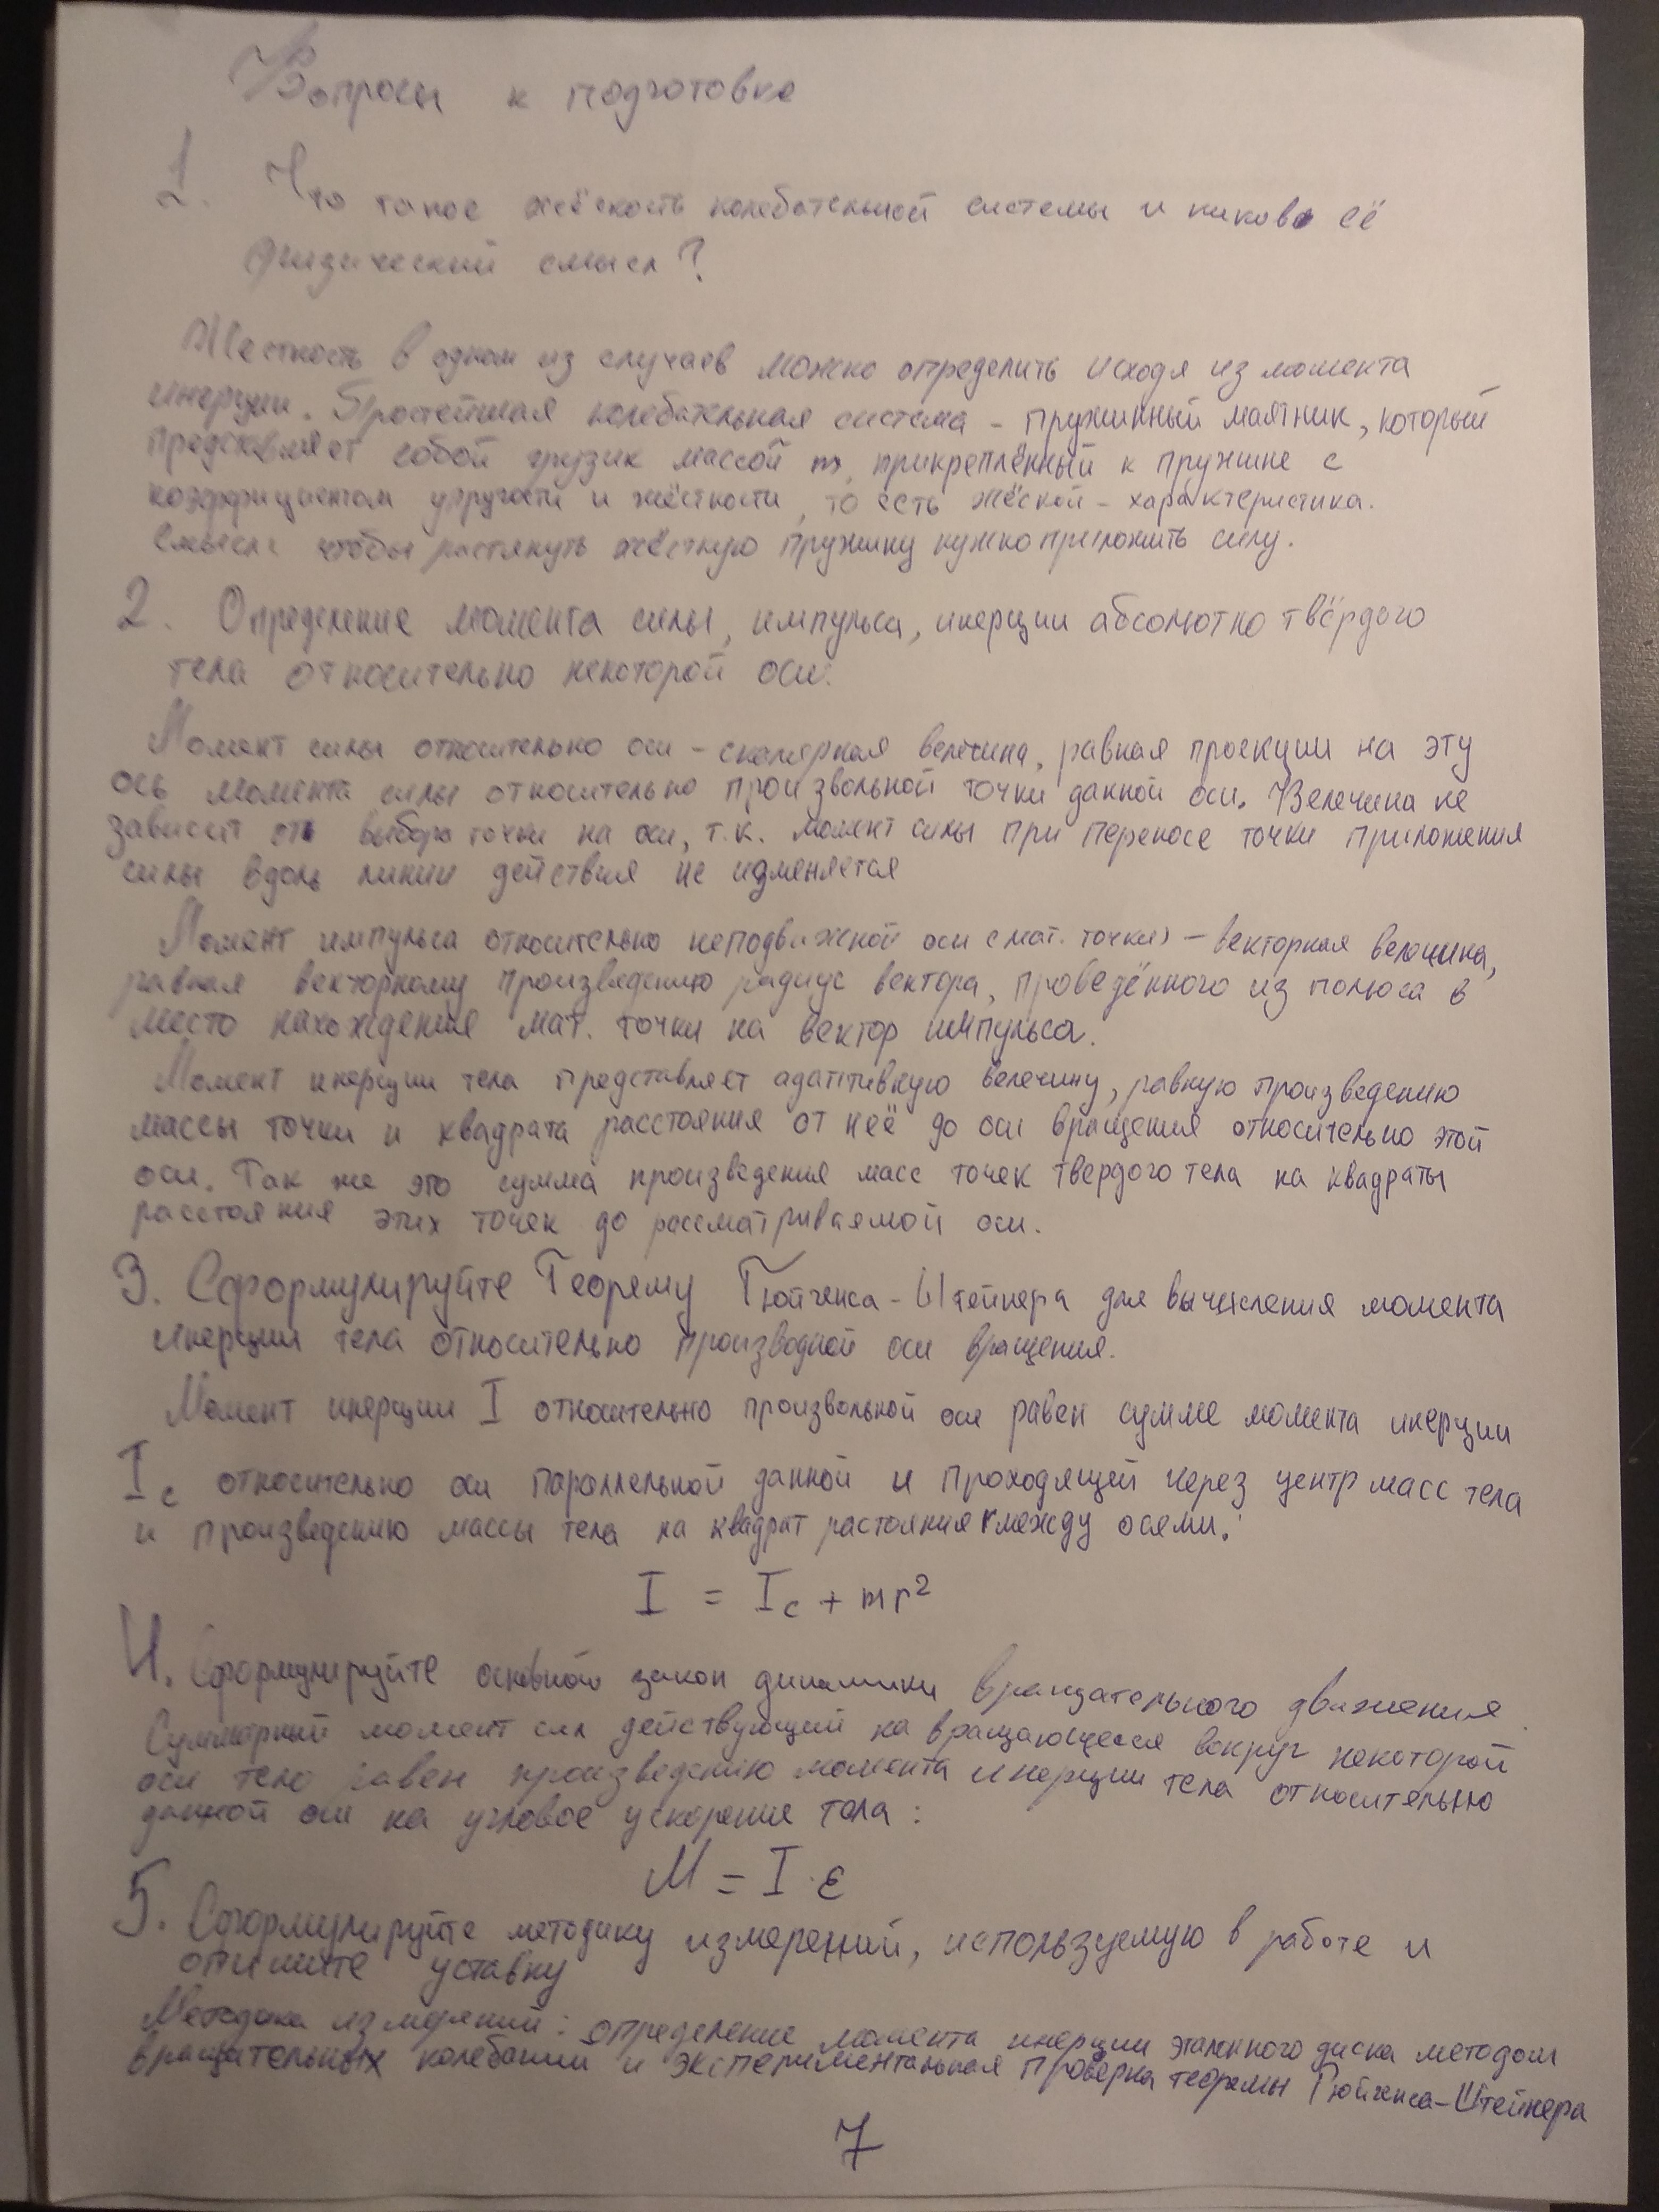 Вопросы к подготовке
1. Что такое жёскость колебательной системы и каково её
физический смысл?
Жесткость в одном из случаев можно определить исходя из момента
инерции. Простейшая колебательная система - пружинный маятник, который
представляет собой грузик массой m, прикреплённый к пружине с
коэффициентом упругости и жёсткости, то есть жёской - характеристика.
Смысл: чтобы растянуть жёсткую пружину нужно приложить силу.
2. Определение момента силы, импульса, инерции абсолютно твёрдого
тела относительно некоторой оси.
Момент силы относительно оси - скалярная велечина, равная проекции на эту
ось момента силы относительно произвольной точки данной оси. Велечина не
зависит от выбора точки на оси, т.к. момент силы при переносе точки приложения
силы вдоль линии действия не изменяется
Момент импульса относительно неподвижной оси (мат. точки) - векторная велечина,
равная векторному произведению радиус вектора, проведённого из полюса в
место нахождения мат. точки на вектор импульса.
Момент инерции тела представляет адаптивную велечину, равную произведению
массы точки и квадрата расстояния от неё до оси вращения относительно этой
оси. Так же это сумма произведения масс точек твердого тела на квадраты
расстояния этих точек до рассматриваемой оси.
3. Сформулируйте Теорему Гюйгенса-Штейнера для вычисления момента
инерции тела относительно производной оси вращения.
Момент инерции I относительно произвольной оси равен сумме момента инерции
I c относительно оси параллельной данной и проходящей через центр масс тела
и произведению массы тела на квадрат растояния r между осями.
I = Ic + mr²
4. Сформулируйте основной закон динамики вращательного движения.
Суммарный момент сил действующий на вращающееся вокруг некоторой
оси тело равен произведению момента инерции тела относительно
данной оси на угловое ускорение тела:
M = I · ε
5. Сформулируйте методику измерений, используемую в работе и
опишите уставку
Методика измерений: определение момента инерции эталонного диска методом
вращательных колебаний и экспериментальная проверка теоремы Гюйгенса-Штейнера
7